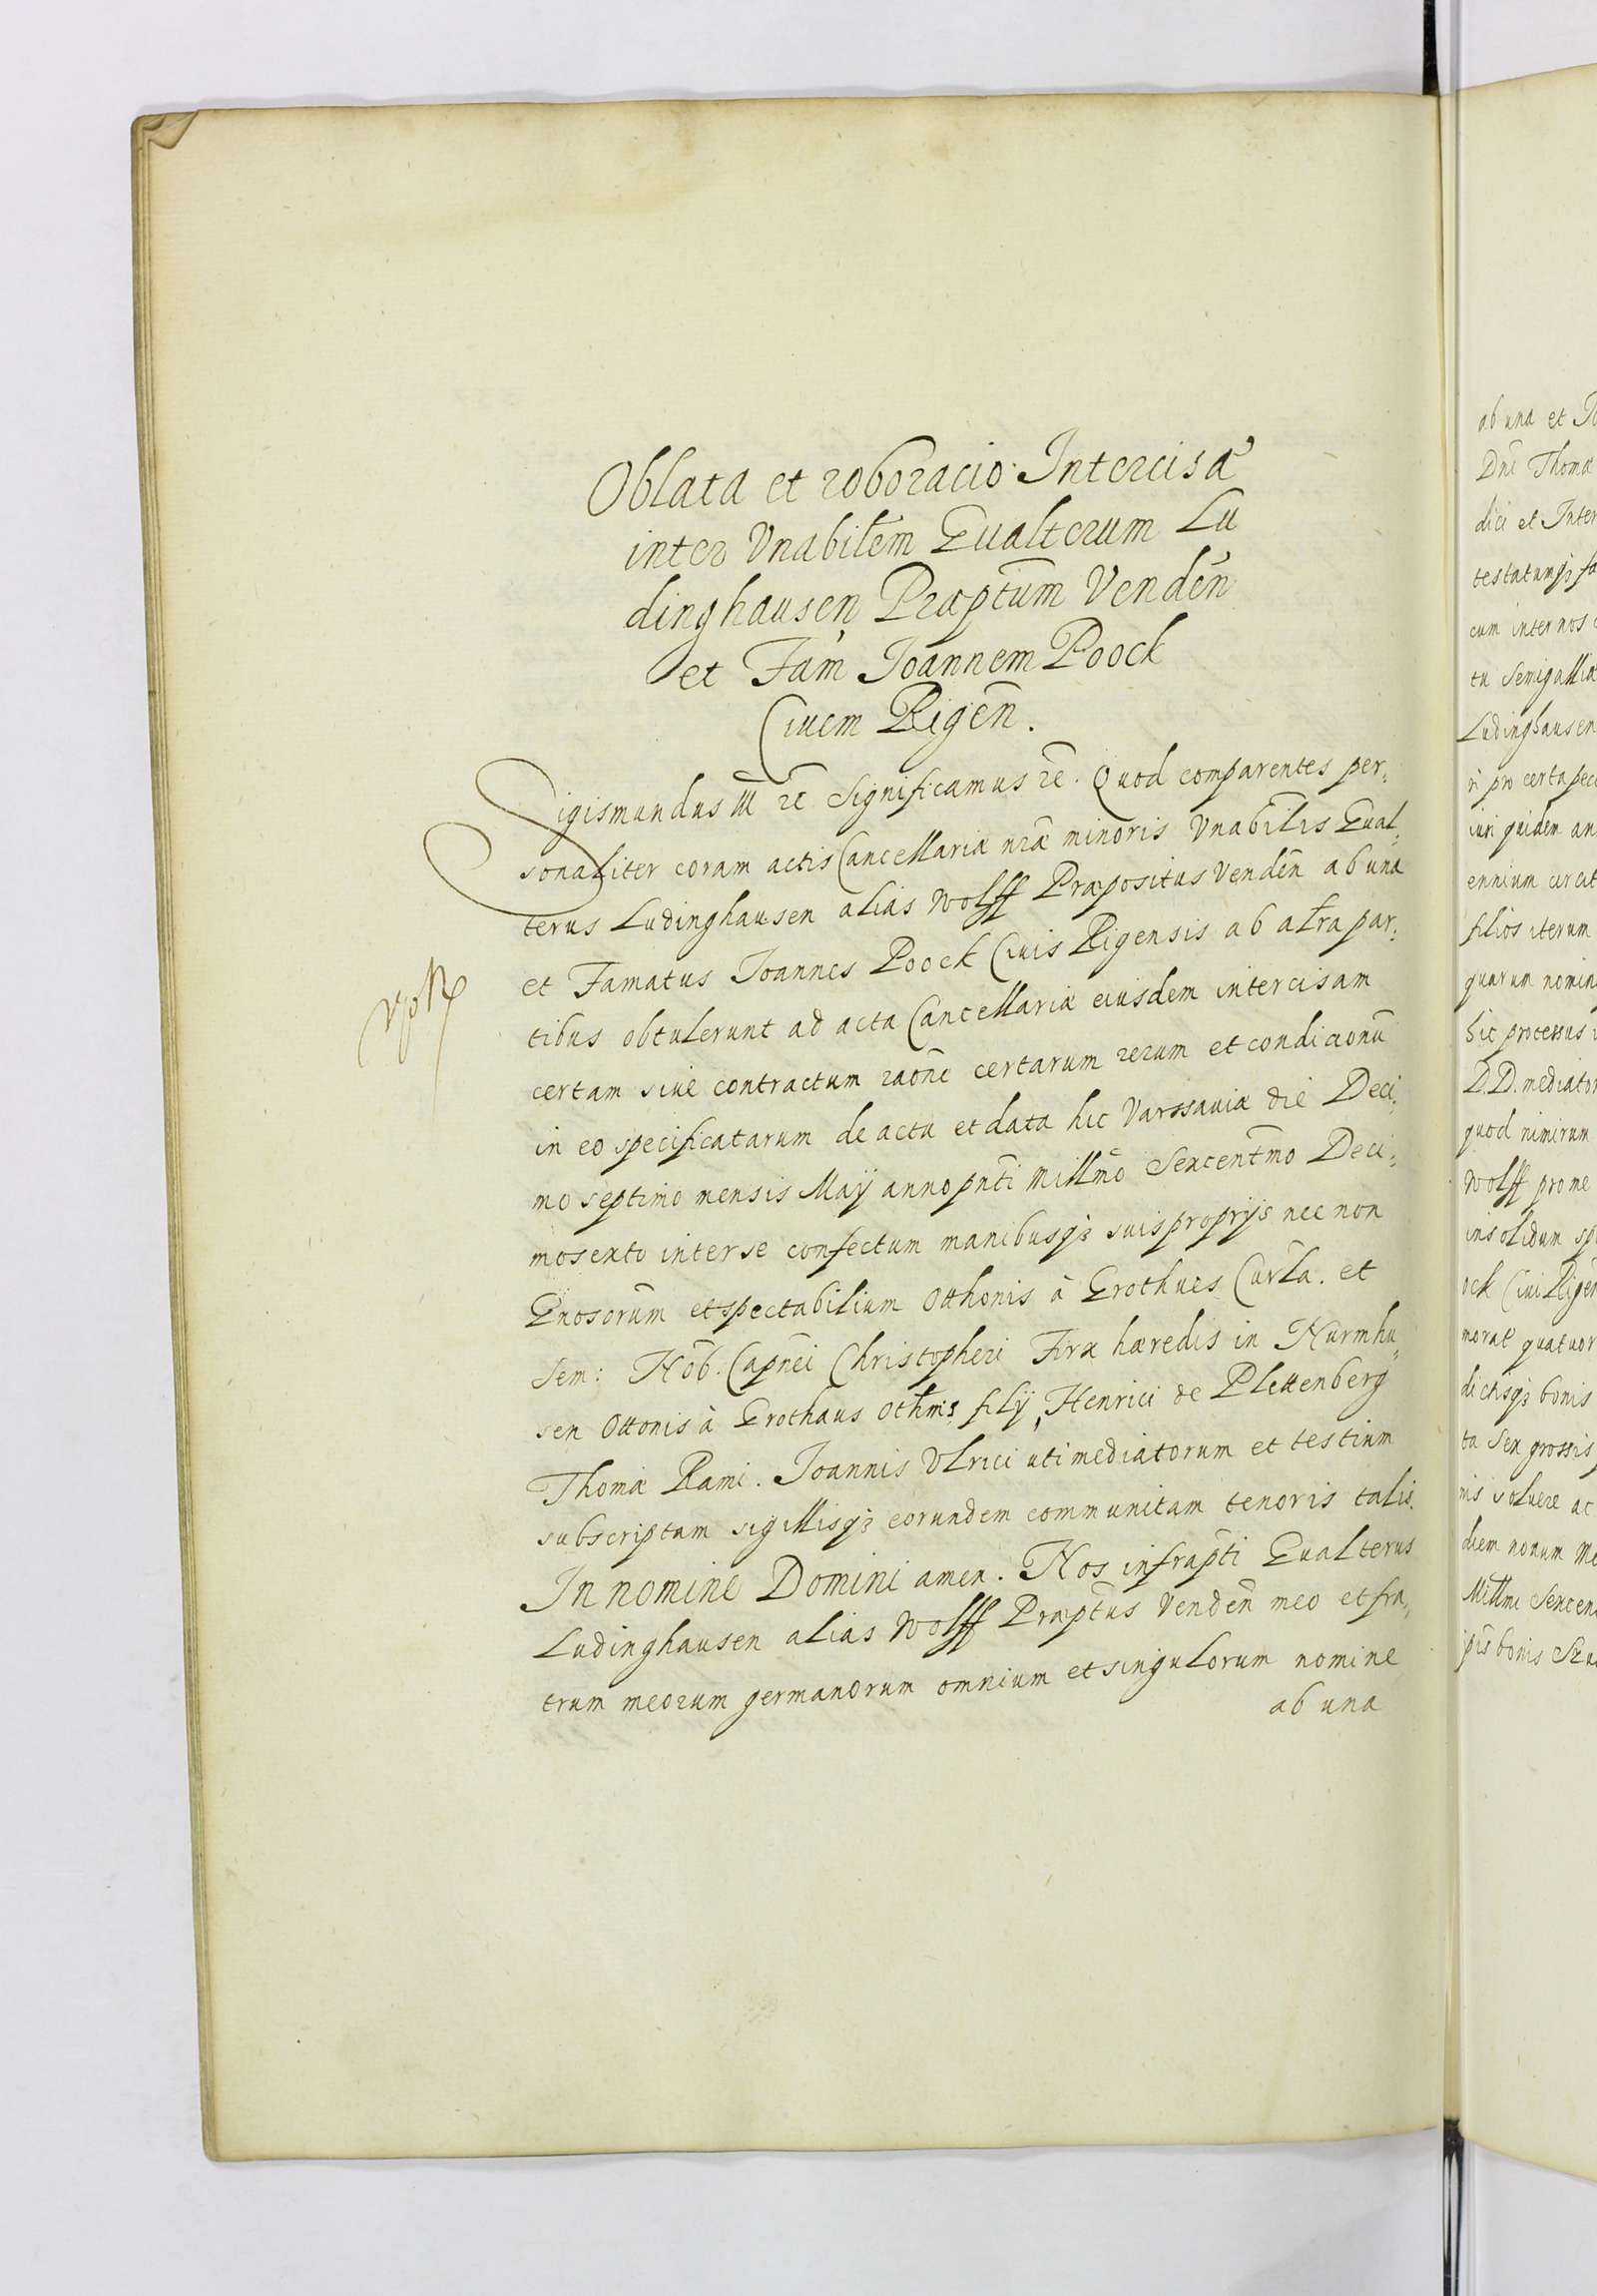 Oblata et roboracio Intercisæ
inter Vnabilem̃ Eualterum Lu
dinghausen Præptum̃ Vendeñ
et Fam̃ Joannem Poock
Ciuem Rigeñ.
Sigismundus III rc̃ Significamus rc̃. Quod comparentes per,
sonaliter coram actis Cancellariæ nr̃æ minoris Vnabilis Eual,
terus Ludinghausen alias Wolff Præpositus Vendeñ ab una
et Famatus Joannes Poock Ciuis Rigensis ab altr̃a par,
tibus obtulerunt ad acta Cancellariæ eiusdem intercisam
certam siue contractum raõne certarum rerum et condicionũ
in eo specificatarum de actu et data hic Varssauiæ die Deci,
mo septimo mensis Maÿ anno pñti Millmõ Sexcentmõ Deci,
mosexto inter se confectum manibusqȝ suis proprÿs nec non
Gnosorum̃ et spectabilium Otthonis à Grothues Curla. et
Sem: Nob̃. Capnei Christopheri Firx hæredis in Nurmhu,
sen Ottonis à Grothaus Othms filÿ, Henrici de Plettenberg
Thomæ Rami. Joannis Vlrici uti mediatorum et testium
subscriptam sigillisqȝ eorundem communitam tenoris talis.
In nomine Domini amen. Nos infrapt̃i Eualterus
Ludinghausen alias Wolff Præpt̃us Vendeñ meo et fra,
trum meorum germanorum omnium et singulorum nomine
ab una
ab una et Jo
Dñi Thomæ
dici et Inter
testatumqȝ fa
cum inter nos
tu Semigalliæ
Ludinghausen
ri pro certa pecu
iuri quidem an
ennium circit
filios iterum
quarum nomin
hic processus
D.D. mediator
quod nimirum
Wolff pro me
insolidum sp
ock Ciui Rigeñ
morat quatuor
dictisqȝ bonis
ta Sex grossis
nis soluere ac
diem nonum Me
Millmi Sexcen
ipis bonis